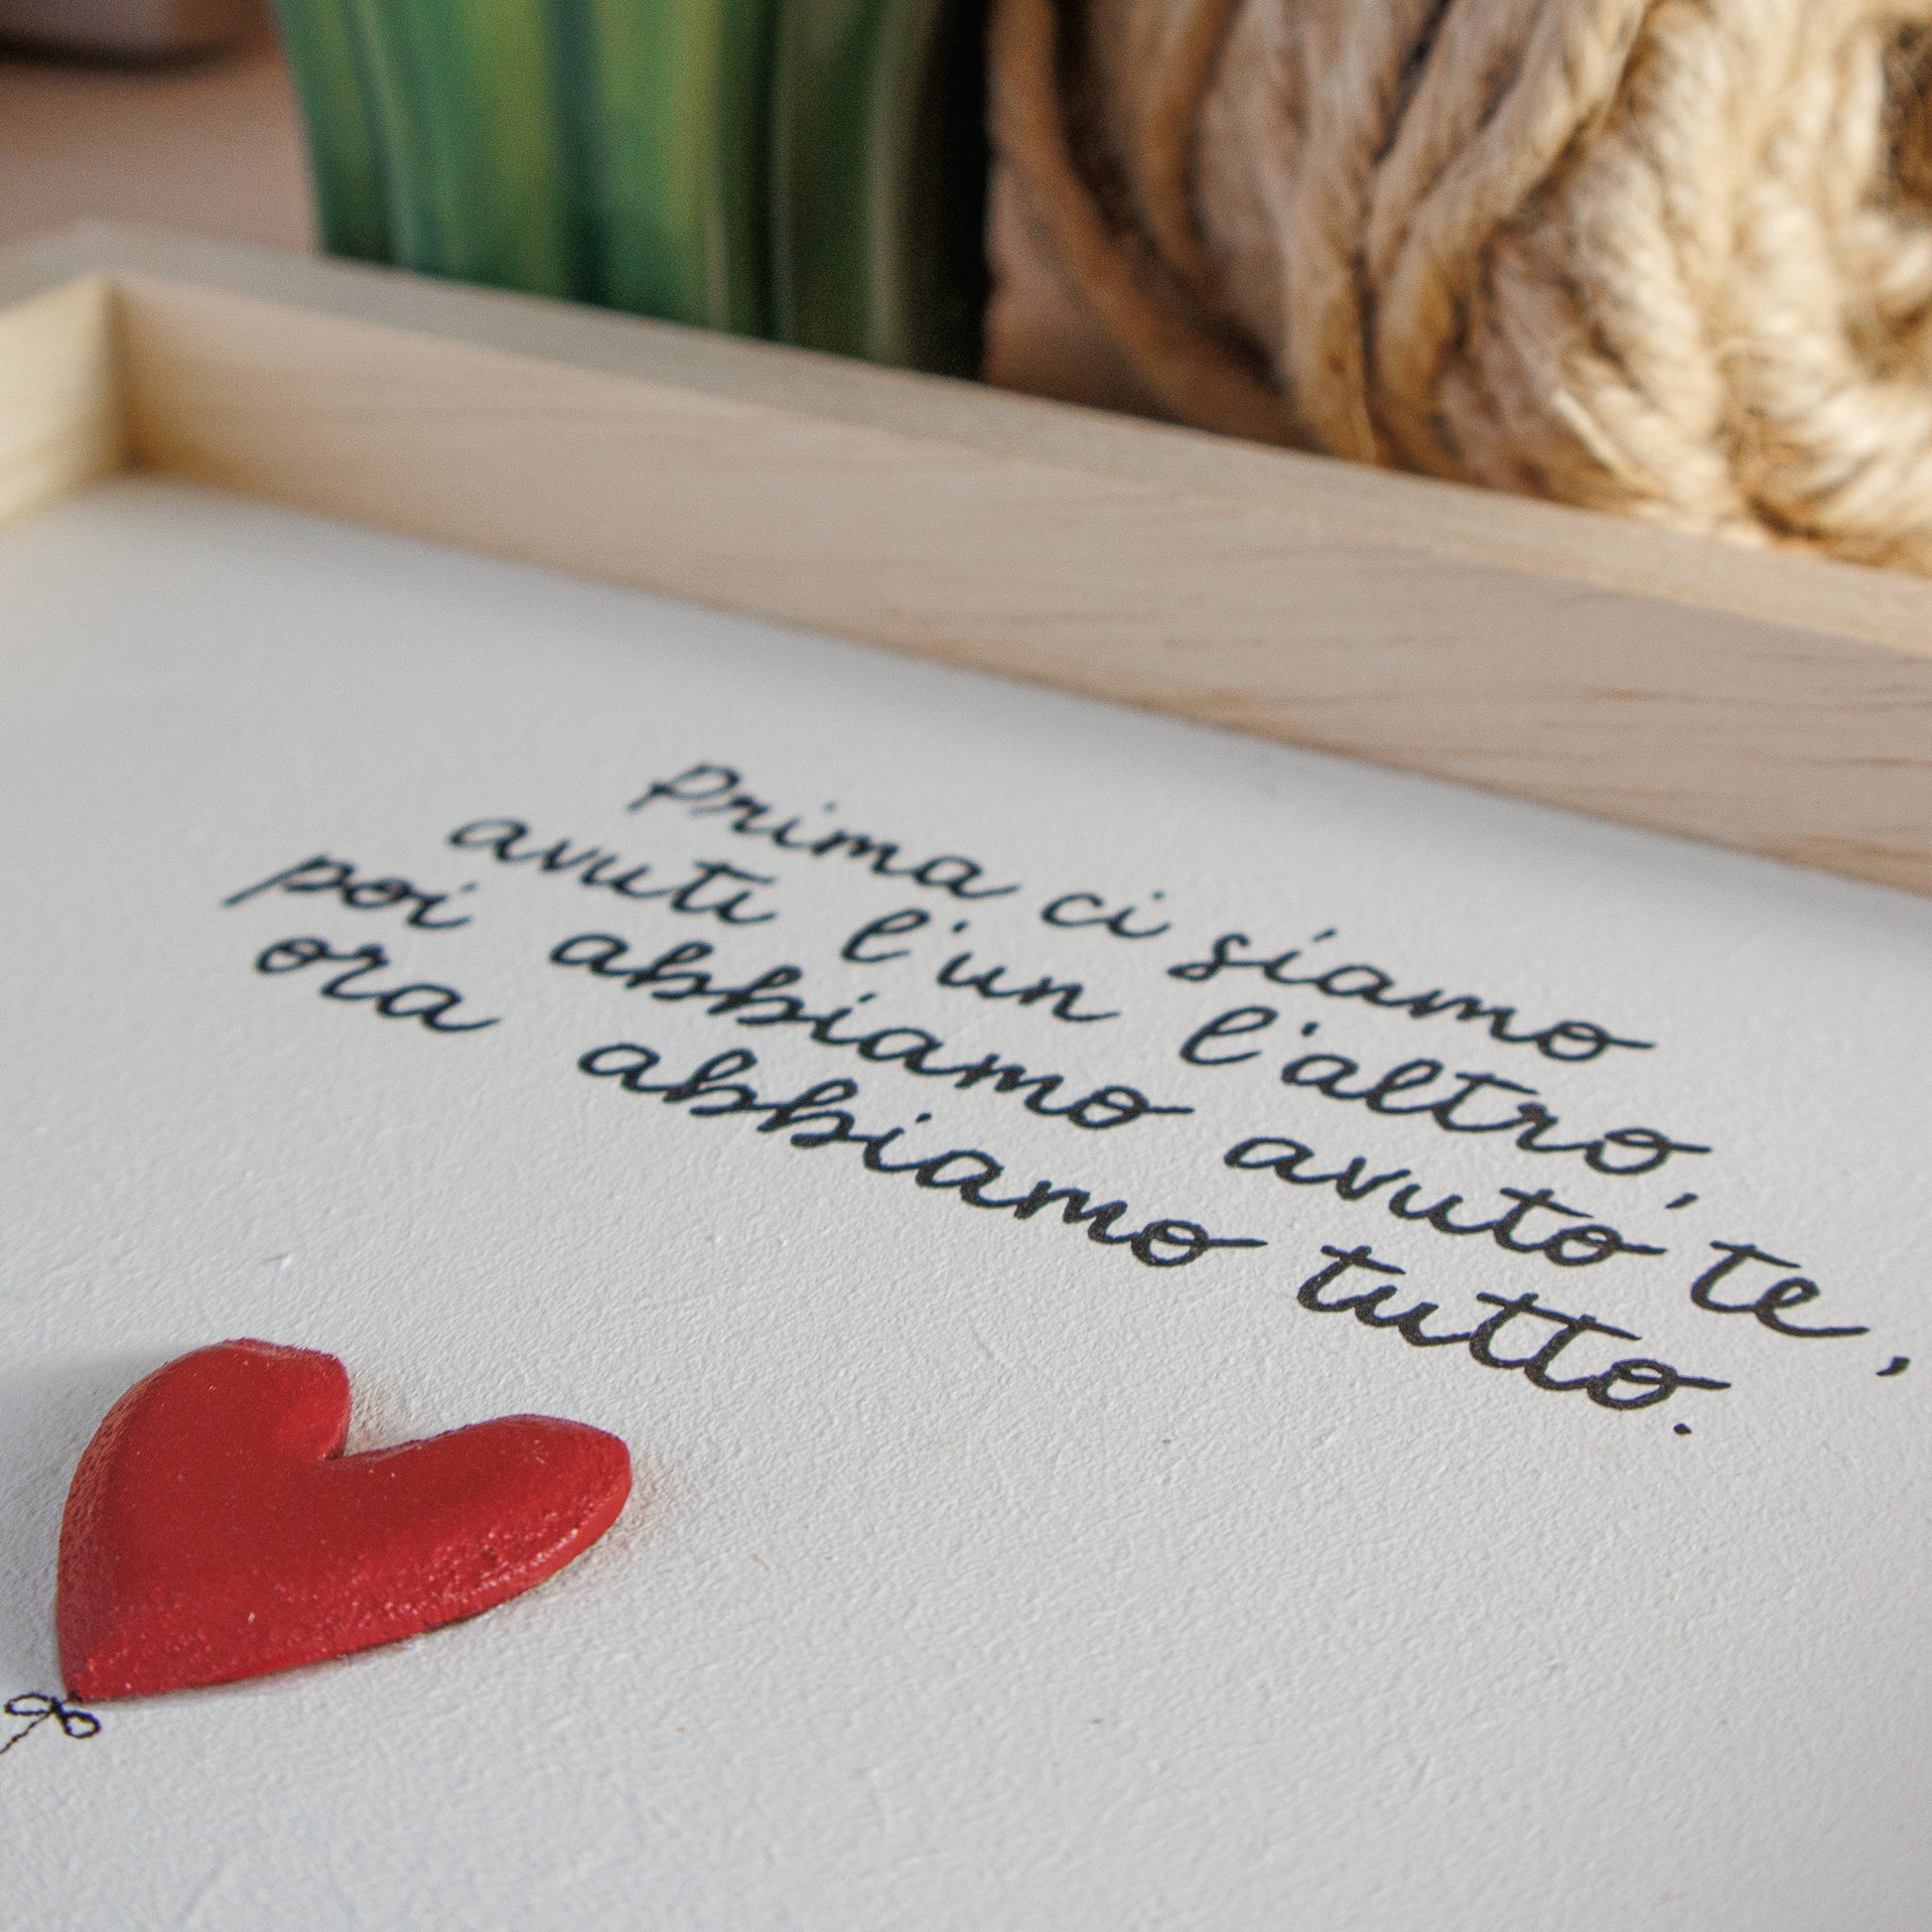 Prima ci siamo
avuti l'un l'altro,
poi abbiamo avuto te,
ora abbiamo tutto.